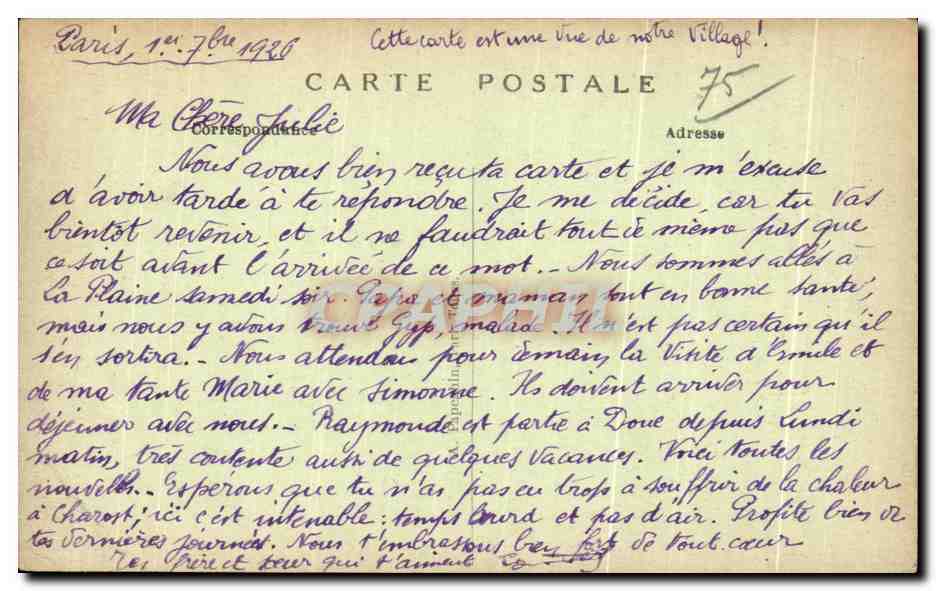 Paris, 1er 7bre 1926
Cette carte est une vue de notre Village!
CARTE POSTALE
75
Ma Chère Julie
Correspondance
Adresse
Nous avons bien reçu ta carte et je m'excuse
d'avoir tardé à te répondre. Je me décide, car tu vas
bientôt revenir, et il ne faudrait tout de même pas que
ce soit avant l'arrivée de ce mot. - Nous sommes allés à
La Plaine samedi soir. Papa et maman sont en bonne santé,
mais nous y avons trouvé Gyp, malade. Il n'est pas certain qu'il
s'en sortira. - Nous attendons pour demain, la visite d'Emile et
de ma tante Marie avec Simonne. Ils doivent arriver pour
déjeuner avec nous. - Raymonde est partie à Doue depuis Lundi
matin, très contente aussi de quelques vacances. Voici toutes les
nouvelles. - Espérons que tu n'as pas eu trop à souffrir de la chaleur
à Charost; ici c'est intenable: temps lourd et pas d'air. Profite bien de
tes dernières journées. Nous t'embrassons bien fort de tout cœur
Tes frère et sœur qui t'aiment
CPAPHIL